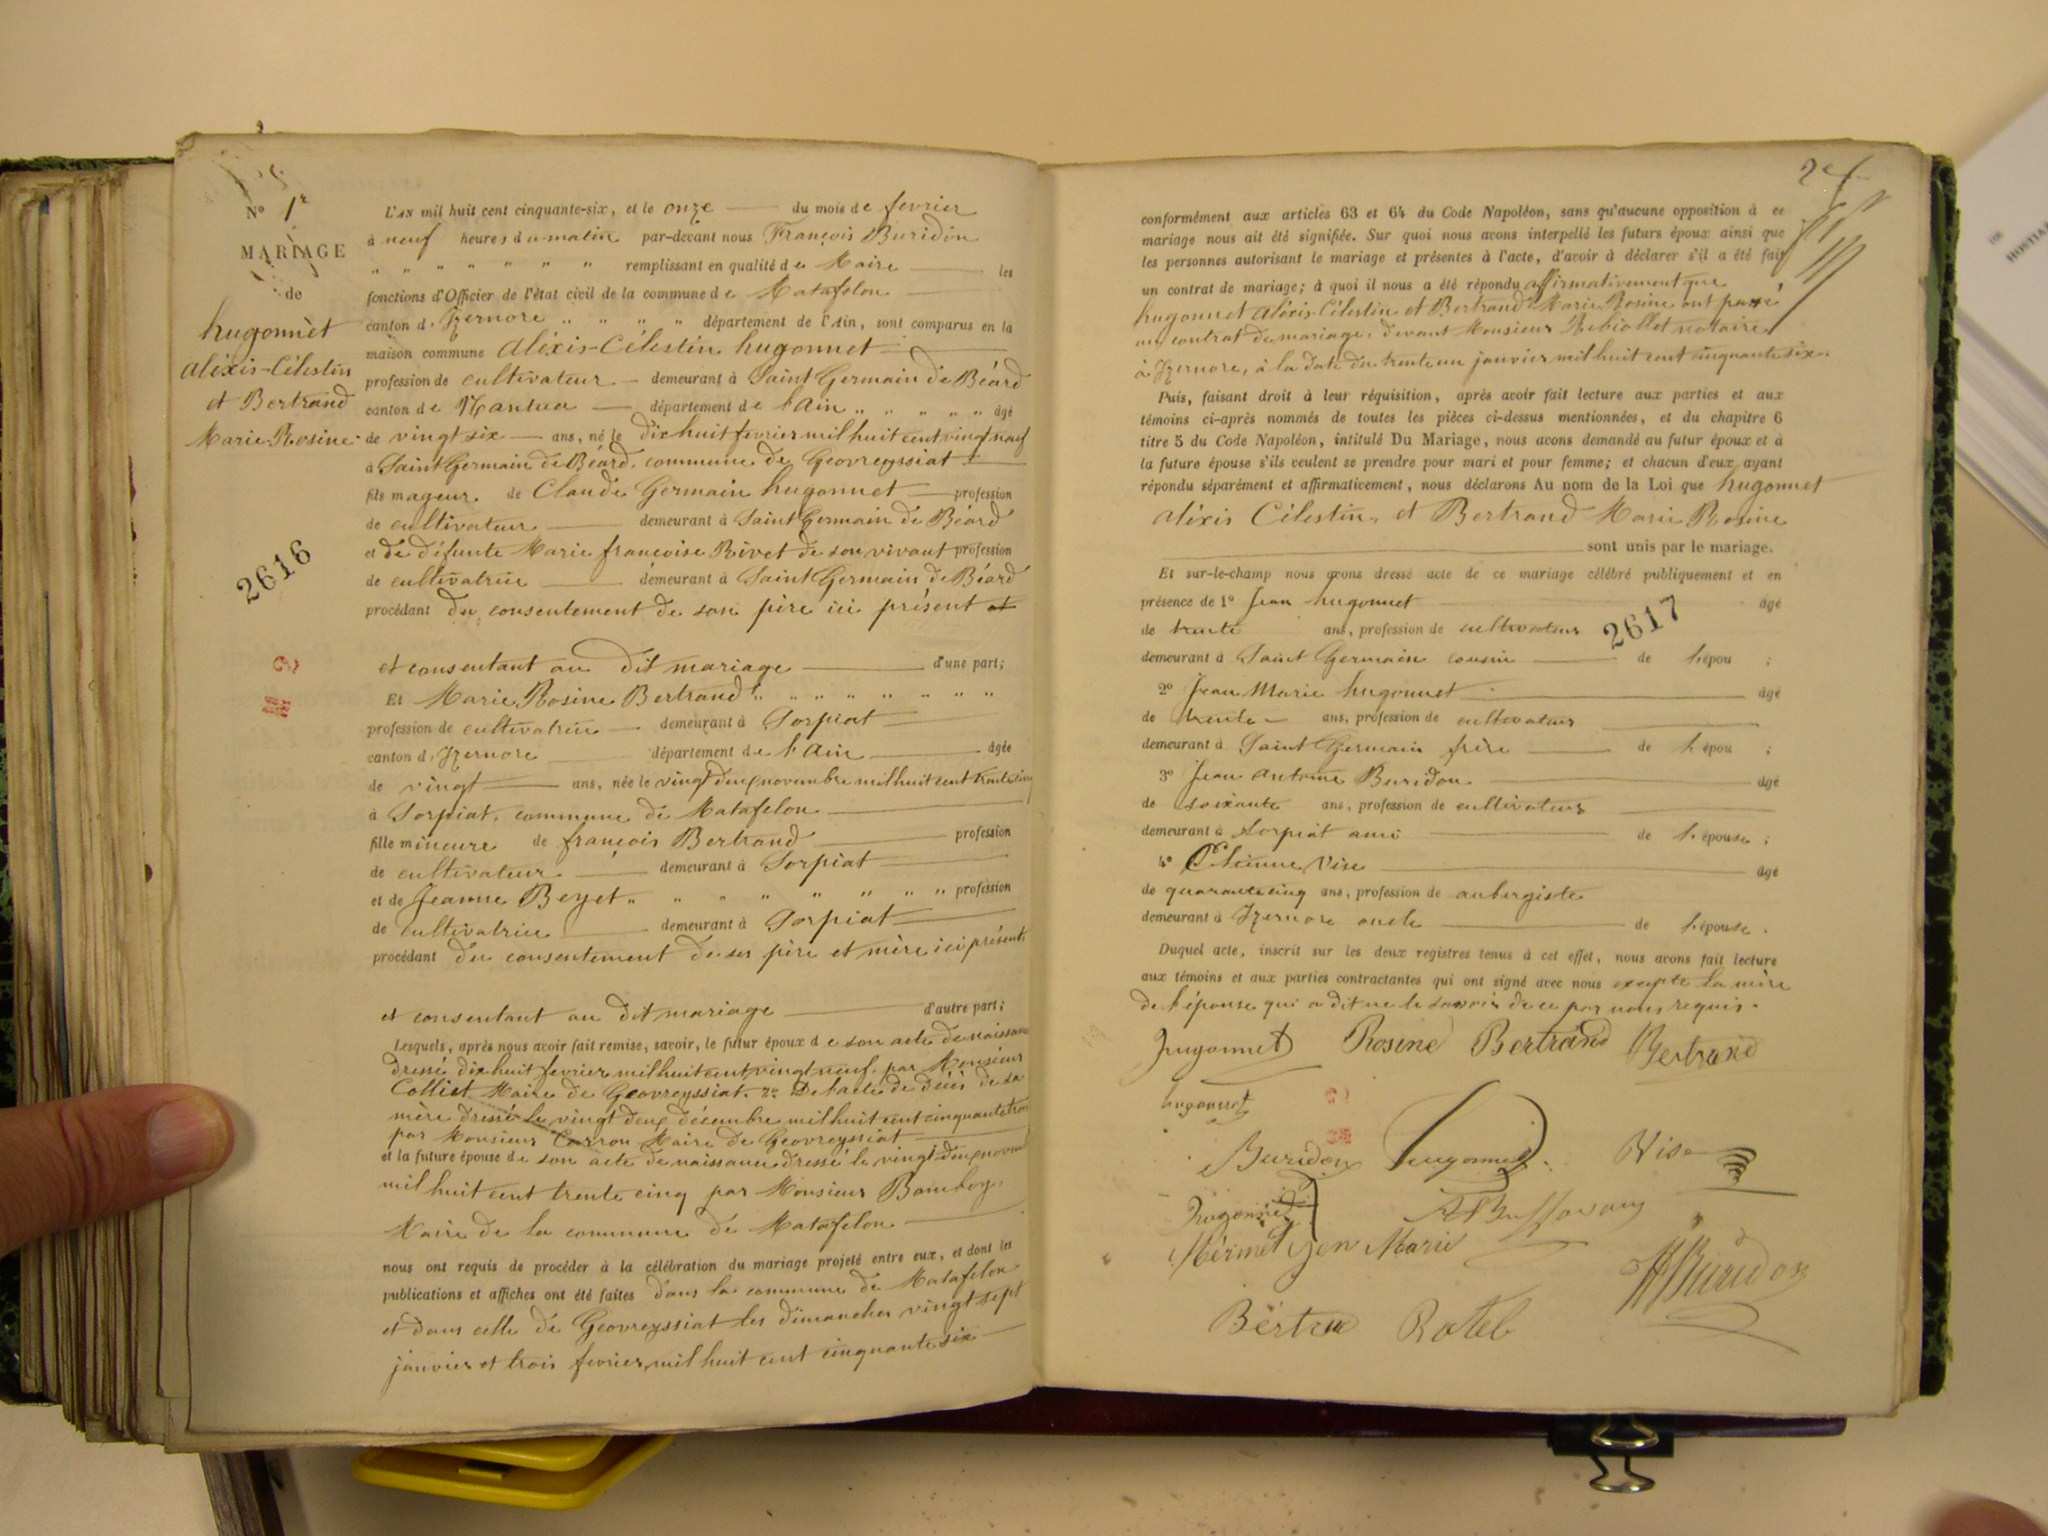 N° 1r
MARIAGE
de
hugonnet
aléxis-Célestin
et Bertrand
Marie Rosine.
2616
L'AN mil huit cent cinquante-six, et le onze du mois de fevrier
à neuf heures du matin par-devant nous François Buridon
" " " " " " " remplissant en qualité de Maire les
fonctions d'Officier de l'état civil de la commune de Matafelon
canton d'Izernore " " " " département de l'Ain, sont comparus en la
maison commune aléxis-Célestin hugonnet
profession de cultivateur demeurant à Saint Germain de Béard
canton de Nantua département de l'Ain " " " " " âgé
de vingt six ans, né le dix huit fevrier mil huit cent vingt neuf
à Saint Germain de Béard, commune de Géovreyssiat
fils mageur de Claude Germain hugonnet profession
de cultivateur demeurant à Saint Germain de Béard
et de défunte Marie françoise Rivet de son vivant profession
de cultivatrice demeurant à Saint Germain de Béard
procédant du consentement de son père ici présent et
et consentant au dit mariage d'une part;
Et Marie Rosine Bertrand " " " " " " " "
profession de cultivatrice demeurant à Sorpiat
canton d'Izernore département de l'Ain âgée
de vingt ans, née le vingt deux novembre mil huit cent trente cinq
à Sorpiat, commune de Matafelon
fille mineure de françois Bertrand profession
de cultivateur demeurant à Sorpiat
et de Jeanne Beyet " " " " " " " profession
de cultivatrice demeurant à Sorpiat
procédant du consentement de ses père et mère ici présents
et consentant au dit mariage d'autre part;
Lesquels, après nous avoir fait remise, savoir, le futur époux de son acte de naissance
dressé dix huit fevrier mil huit cent vingt neuf par Monsieur
Colliet Maire de Géovreyssiat. 2° De l'acte de décès de sa
mère dressé le vingt deux décembre mil huit cent cinquante trois
par Monsieur Carron Maire de Géovreyssiat
et la future épouse de son acte de naissance dressé le vingt deux novembre
mil huit cent trente cinq par Monsieur Bamboy,
Maire de la commune de Matafelon
nous ont requis de procéder à la célébration du mariage projeté entre eux, et dont les
publications et affiches ont été faites dans la commune de Matafelon
et dans celle de Géovreyssiat les dimanches vingt sept
janvier et trois fevrier mil huit cent cinquante six
conformément aux articles 63 et 64 du Code Napoléon, sans qu'aucune opposition à ce
mariage nous ait été signifiée. Sur quoi nous avons interpellé les futurs époux ainsi que
les personnes autorisant le mariage et présentes à l'acte, d'avoir à déclarer s'il a été fait
un contrat de mariage; à quoi il nous a été répondu affirmativement que
hugonnet aléxis-Célestin et Bertrand Marie Rosine ont passé
un contrat de mariage, devant Monsieur Rebiollet nottaire
à Izernore, à la date du trente un janvier mil huit cent cinquante six.
Puis, faisant droit à leur réquisition, après avoir fait lecture aux parties et aux
témoins ci-après nommés de toutes les pièces ci-dessus mentionnées, et du chapitre 6
titre 5 du Code Napoléon, intitulé Du Mariage, nous avons demandé au futur époux et à
la future épouse s'ils veulent se prendre pour mari et pour femme; et chacun d'eux ayant
répondu séparément et affirmativement, nous déclarons Au nom de la Loi que hugonnet
aléxis Célestin, et Bertrand Marie Rosine
sont unis par le mariage.
Et sur-le-champ nous avons dressé acte de ce mariage célébré publiquement et en
présence de 1° Jean hugonnet âgé
de trente ans, profession de cultivateur 2617
demeurant à Saint Germain cousin de l'épou ;
2° Jean Marie hugonnet âgé
de trente ans, profession de cultivateur
demeurant à Saint Germain frère de l'épou ;
3° Jean antoine Buridon âgé
de soixante ans, profession de cultivateur
demeurant à Sorpiat ami de l'épouse ;
4° Etienne Vise âgé
de quarante cinq ans, profession de aubergiste
demeurant à Izernore oncle de l'épouse.
Duquel acte, inscrit sur les deux registres tenus à cet effet, nous avons fait lecture
aux témoins et aux parties contractantes qui ont signé avec nous exepté la mère
de l'épouse qui a dit ne le savoir de ce par nous requis.
hugonnet Rosine Bertrand Bertrand
hugonnet
Buridon hugonnet Vise
hugonnet
Mérmet Jean Marie
Buridon
Bértra Ratel